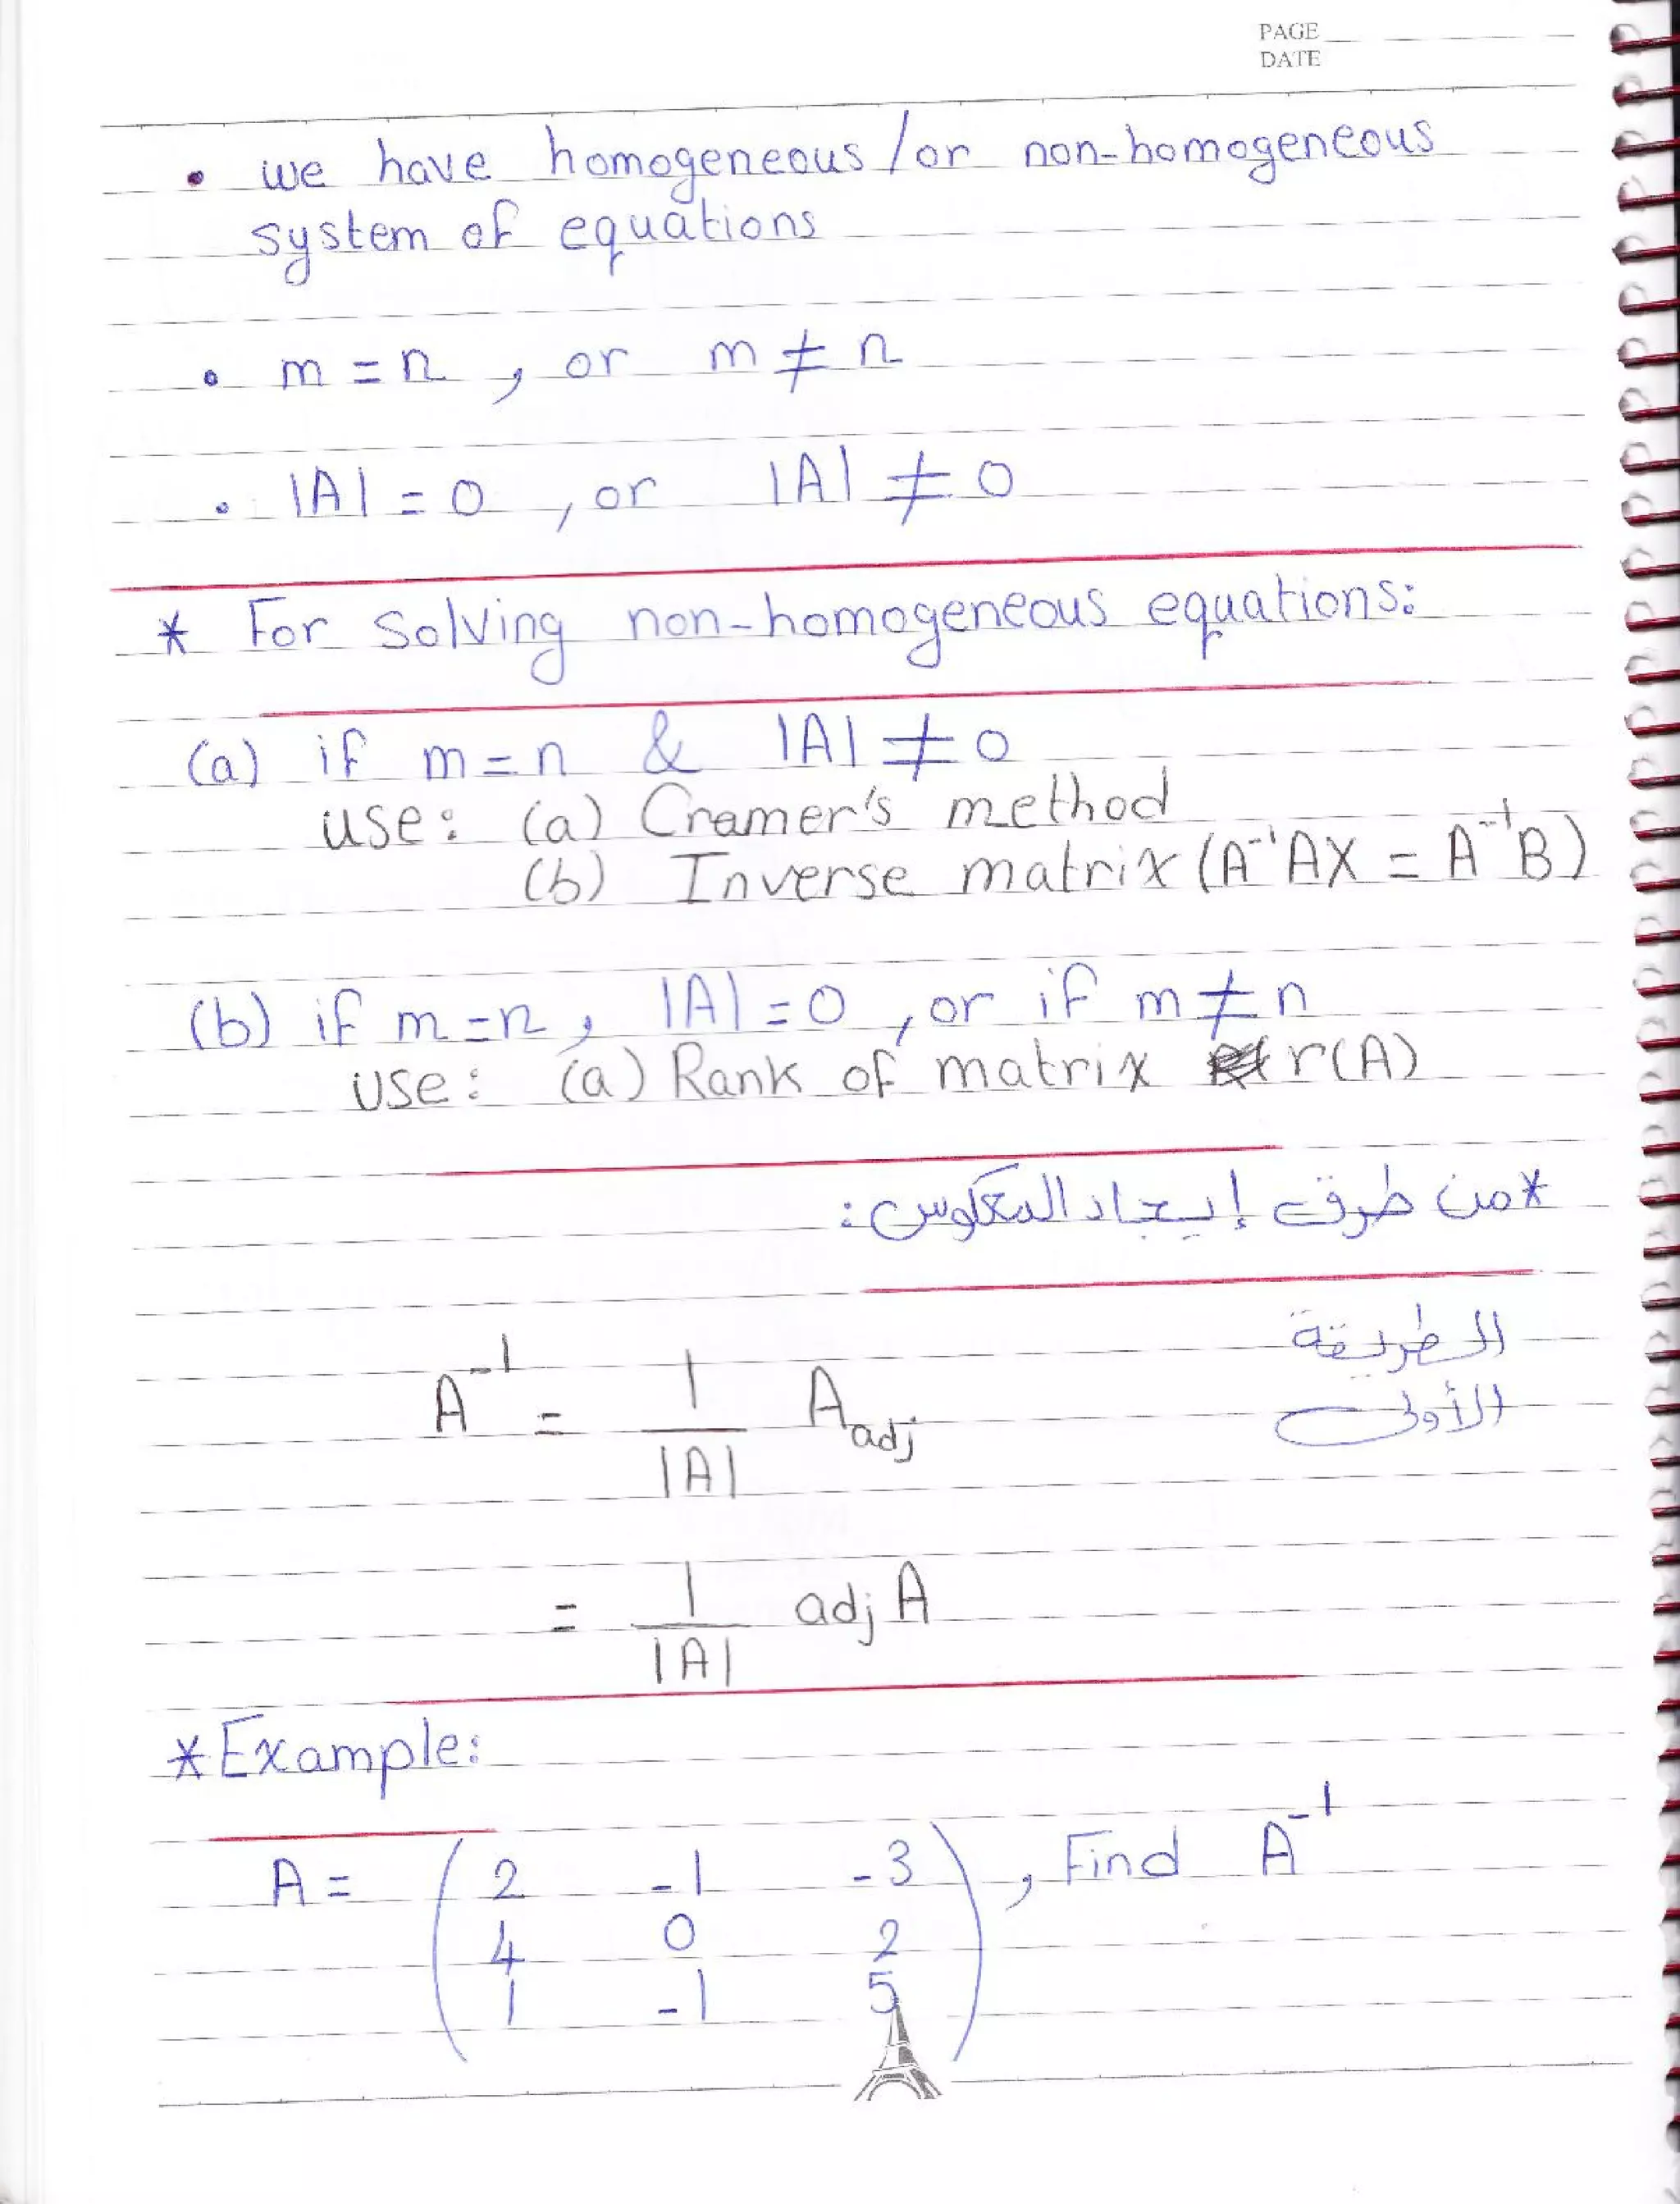 PAGE
DATE
• we have homogeneous / or non-homogeneous
system of equations
• m = n , or m ≠ n
• |A| = 0 , or |A| ≠ 0
* For solving non-homogeneous equations:
(a) if m = n & |A| ≠ 0
use: (a) Cramer's method
(b) Inverse matrix (A⁻¹AX = A⁻¹B)
(b) if m = n , |A| = 0 , or if m ≠ n
use: (a) Rank of matrix r(A)
* من طرق إيجاد المعكوس :
الطريقة
الأولى
A⁻¹ = 1/|A| A_adj
= 1/|A| adj A
* Example:
A = ( 2 -1 -3 ) , Find A⁻¹
4 0 2
1 -1 5